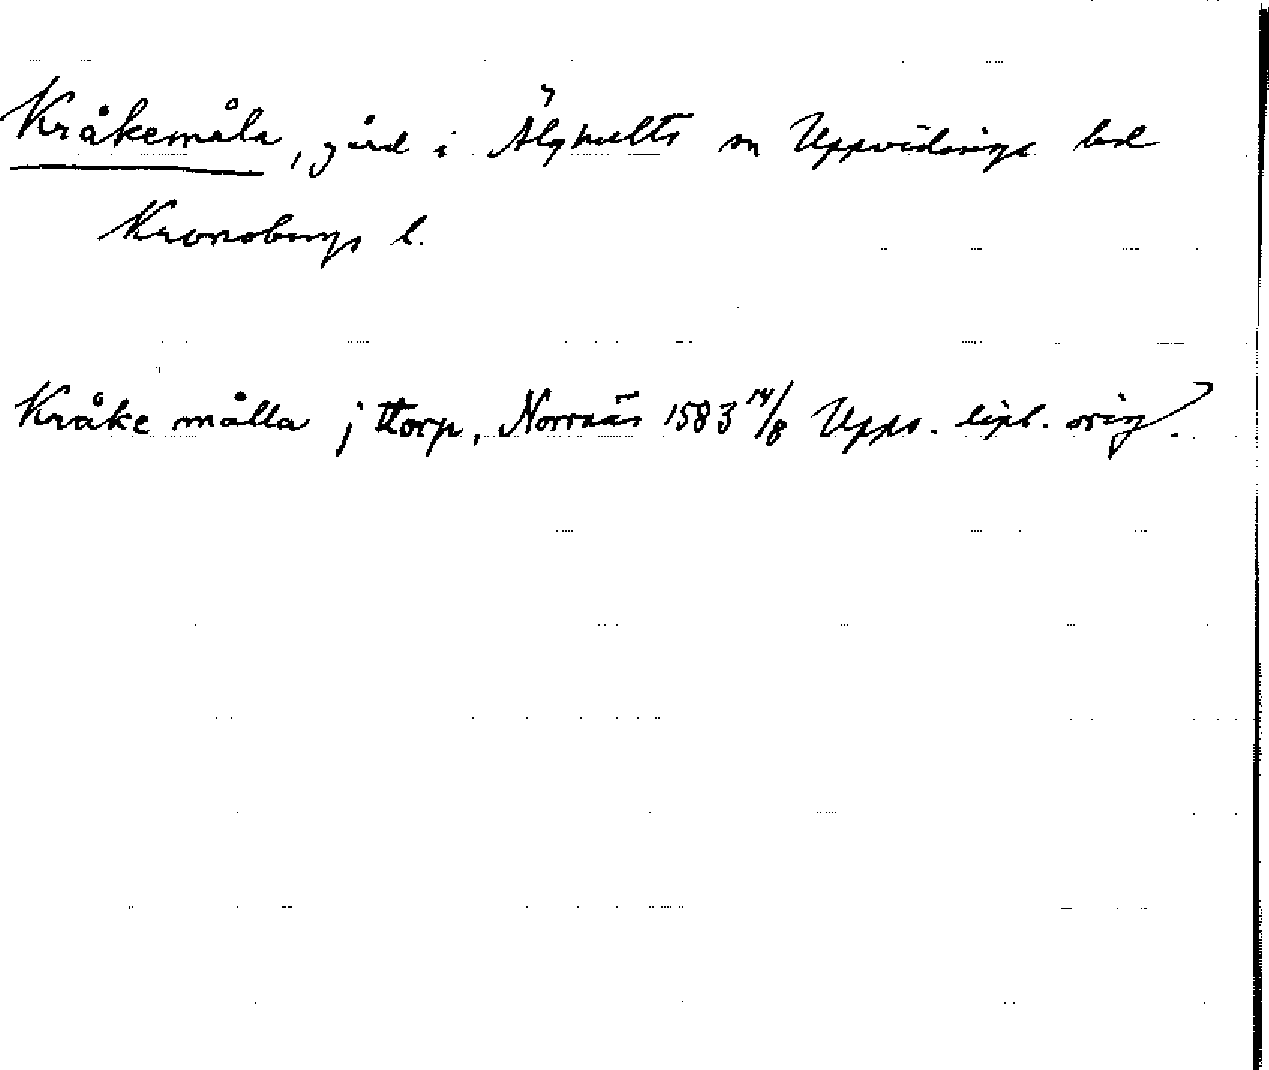 Kråkemåla, gård i Älghults sn Uppvidinge hd
Kronobergs l.
Kråke målla j ttorp, Norrnäs 1583 14/8 Upps. dipl. orig.